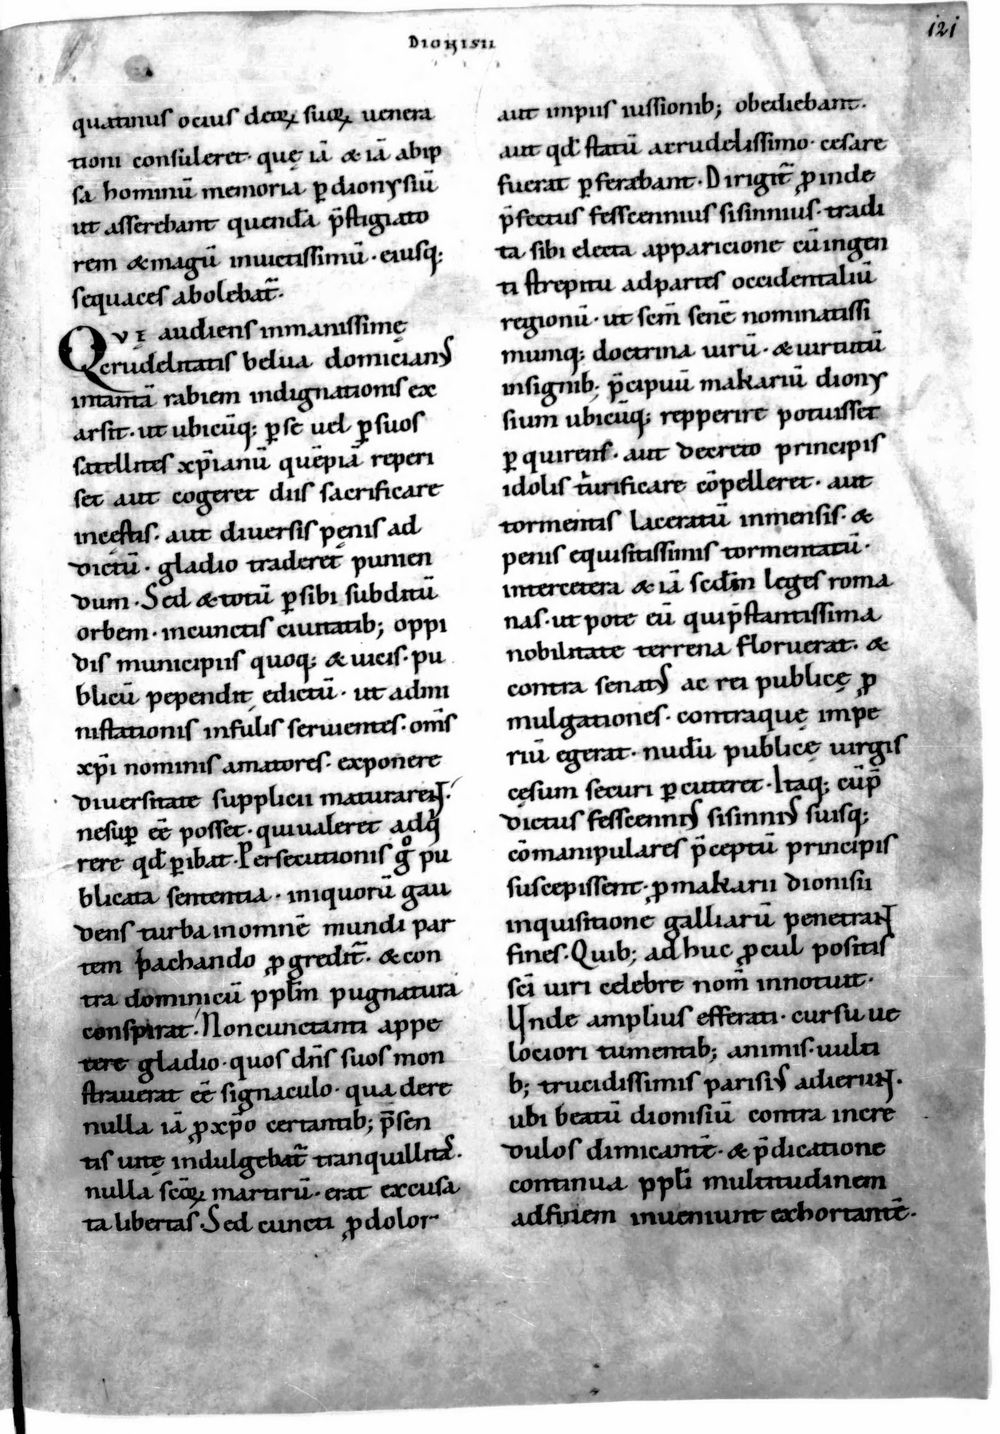 DIONISII
121
quatinus ocius deoꝝ suoꝝ uenera
tioni consuleret· quę iā & iā abip
sa hominū memoria ꝑ dionysiū
ut asserebant quendā p̄stigiato
rem & magū inuictissimū· eiusq;
sequaces abolebat̄·
QVI audiens inmanissimę
crudelitatis belua domicianꝰ
intantā rabiem indignationis ex
arsit· ut ubicūq; ꝑ se uel ꝑ suos
satellites xp̄ianū quēpiā reperi
set aut cogeret diis sacrificare
incęstis· aut diuersis penis ad
dictū· gladio traderet punien
dum· Sed & totū ꝑ sibi subditū
orbem· incunctis ciuitatib; oppi
dis municipiis quoq; & uicis· pu
blicū pependit edictū· ut admi
nistationis infulis seruientes· om̄s
xp̄i nominis amatores· exponere
diuersitate supplicii maturarent·
nesuꝑ eē posset· quiualeret adq̊
rere qd̄ ꝑibat· Persecutionis g̊ pu
blicata sententia· iniquorū gau
dens turba inomnē mundi par
tem bachando ꝓgredit̄· & con
tra dominicū ppl̄m pugnatura
conspirat· Non cunctanti appe
tere gladio· quos dn̄s suos mon
strauerat eē signaculo· qua dere
nulla iā ꝓ xp̄o certantib; p̄sen
tis uitę indulgebat̄ tranquillitas·
nulla sc̄oꝝ martirū· erat excusa
ta libertas· Sed cuncti ꝓ dolor
aut impiis iussionib; obediebant·
aut qd̄ statū a crudelissimo· cesare
fuerat ꝑferebant· Dirigit̄ ꝓinde
p̄fectus fescennius sisinnius· tradi
ta sibi electa apparicione cū ingen
ti strepitu adpartes occidentaliū
regionū· ut sem̄ senē nominatissi
mumq; doctrina uirū· & uirtutū
insignib; p̄cipuū makariū diony
sium ubicūq; repperire potuisset
ꝑ quirens· aut decreto principis
idolis t̄urificare cōpelleret· aut
tormentis laceratū inmensis· &
penis equisitissimis tormentatū·
intercetera & iā scdm̄ leges roma
nas· ut pote eū qui p̄stantissima
nobilitate terrena floruerat· &
contra senatꝰ ac rei publicę ꝓ
mulgationes· contraquę impe
riū egerat· nudū publicę uirgis
cęsum securi ꝑcuteret· Itaq; cū p̄
dictus fescenniꝰ sisinniꝰ suisq;
cōmanipulares p̄ceptū principis
suscepissent· ꝓ makarii dionisii
inquisitione galliarū penetrant
fines· Quib; ad huc ꝓcul positis
sc̄i uiri celebre nom̄ innotuit·
Unde amplius efferati· cursu ue
lociori tumentib; animis· uulti
b; trucidissimis parisiꝰ adierunt·
ubi beatū dionisiū contra incre
dulos dimicantē· & p̄dicatione
continua ppl̄i multitudinem
adfidem inueniunt exhortantē·